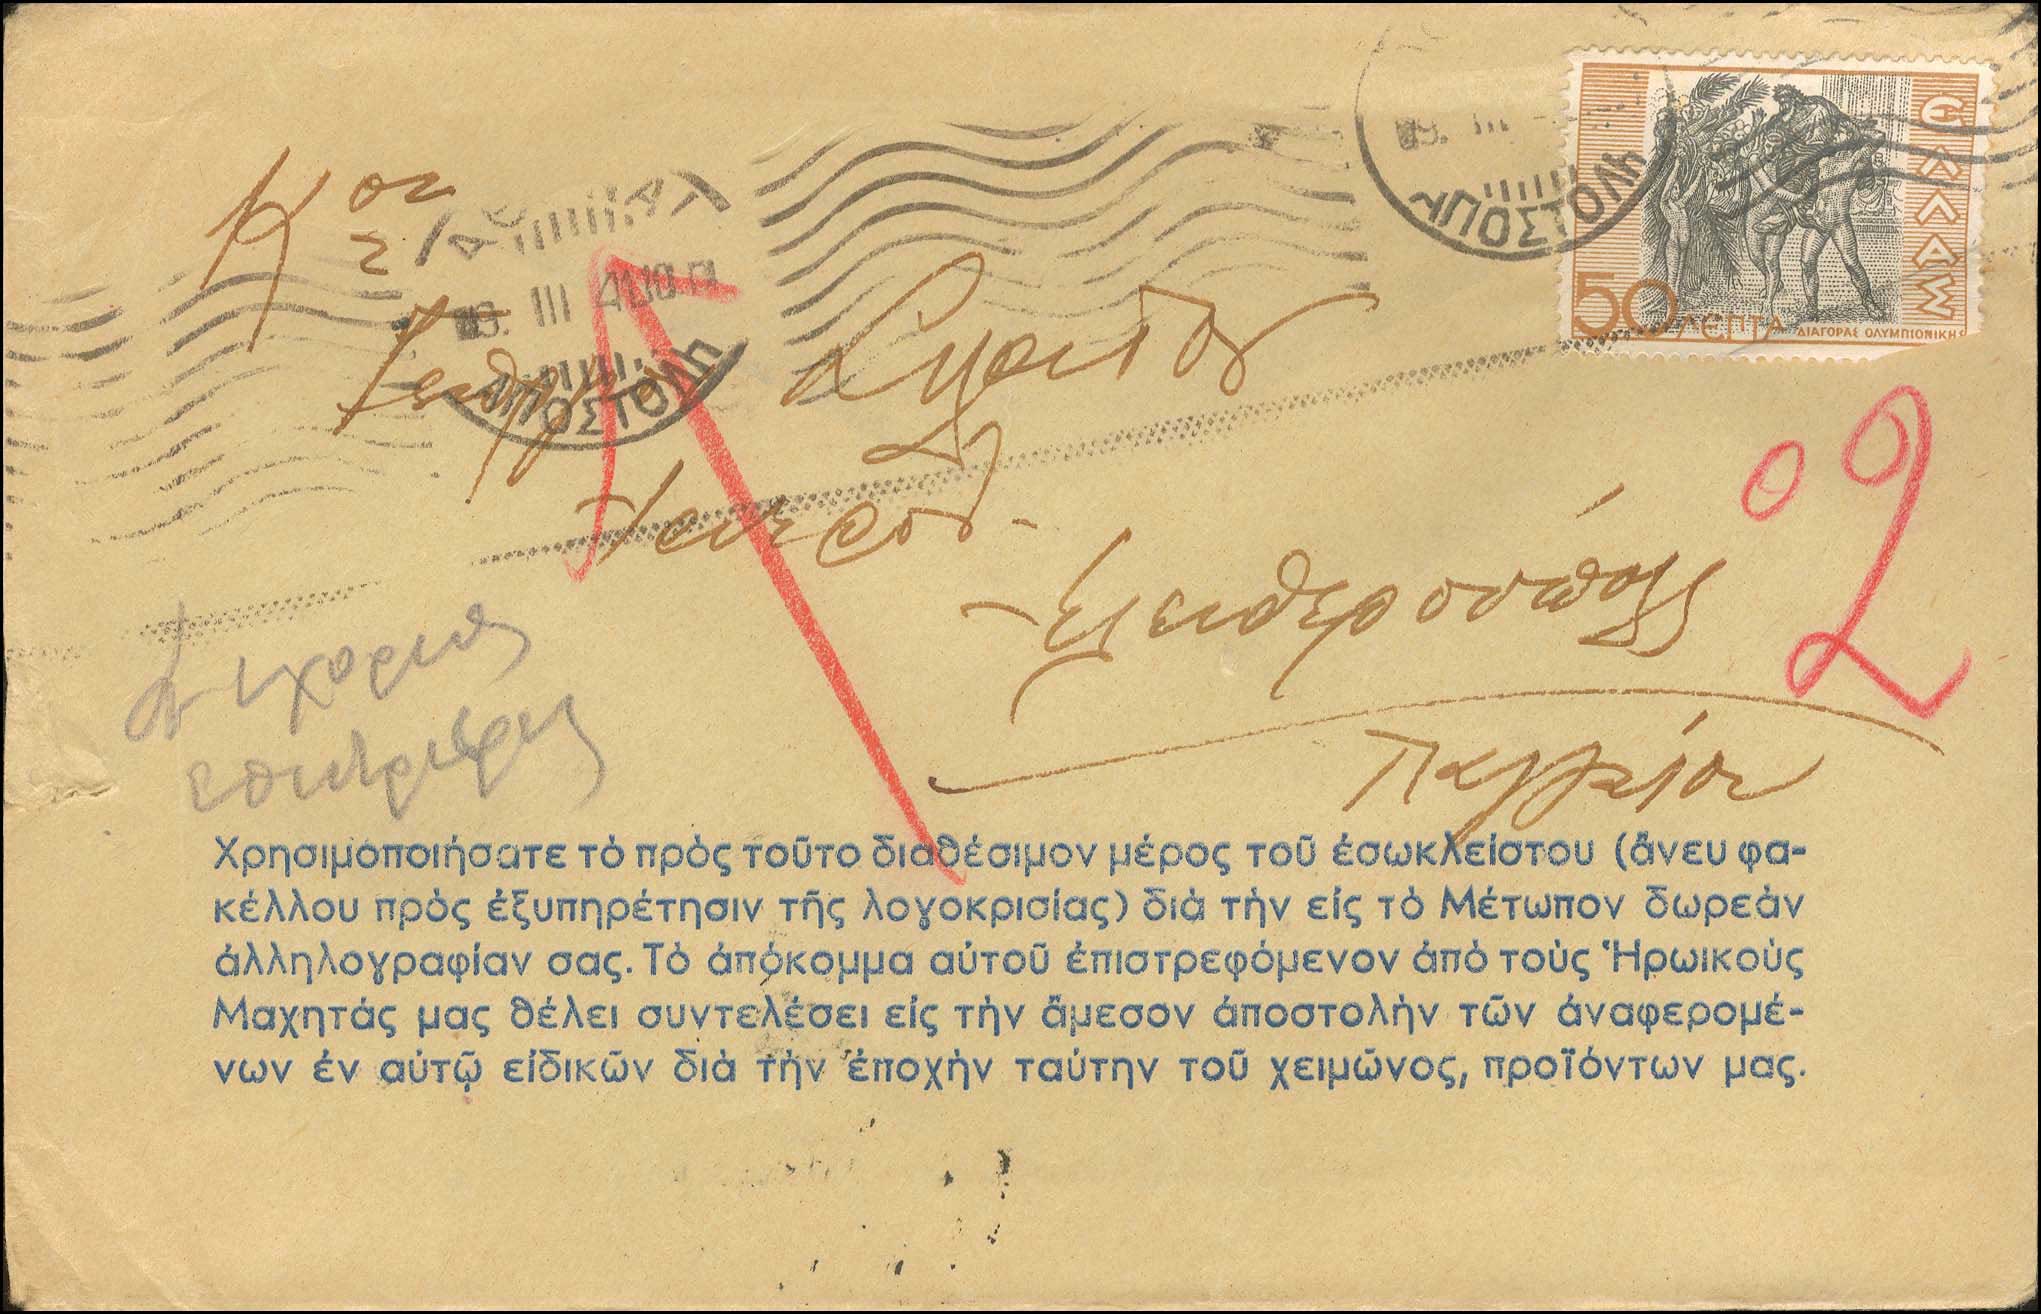 ΕΛΛΑΣ
50 ΛΕΠΤΑ ΔΙΑΓΟΡΑΣ ΟΛΥΜΠΙΟΝΙΚΗΣ
III
ΑΠΟΣΤΟΛΗ
III 41
ΑΠΟΣΤΟΛΗ
Κον
Ἐλευθερούπολις
Παγγαίου
2
Χρησιμοποιήσατε τὸ πρὸς τοῦτο διαθέσιμον μέρος τοῦ ἐσωκλείστου (ἄνευ φα-
κέλλου πρὸς ἐξυπηρέτησιν τῆς λογοκρισίας) διὰ τὴν εἰς τὸ Μέτωπον δωρεὰν
ἀλληλογραφίαν σας. Τὸ ἀπόκομμα αὐτοῦ ἐπιστρεφόμενον ἀπὸ τοὺς Ἡρωικοὺς
Μαχητάς μας θέλει συντελέσει εἰς τὴν ἄμεσον ἀποστολὴν τῶν ἀναφερομέ-
νων ἐν αὐτῷ εἰδικῶν διὰ τὴν ἐποχὴν ταύτην τοῦ χειμῶνος, προϊόντων μας.